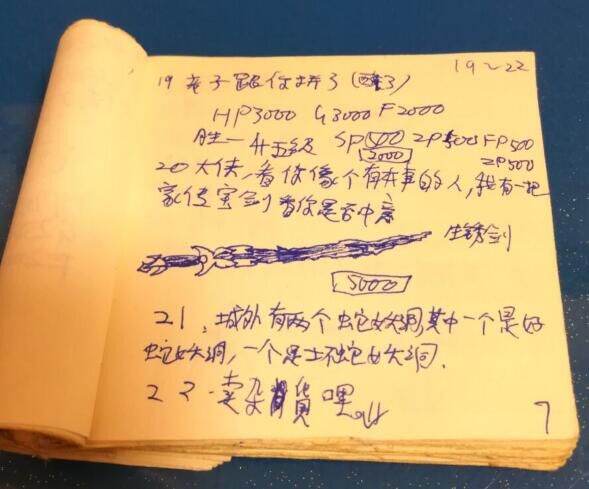 19~22
19 老子跟你拼了(醉了)
HP3000 G3000 F2000
胜一 升五级 SP500 ZP500 FP500
2000 ZP500
20 大侠,看你像个有本事的人,我有一把
家传宝剑看你是否中意
生锈剑
5000
21、城外有两个蛇妖洞,其中一个是好
蛇妖洞,一个是坏蛇妖洞.
22.卖杂货哩
7